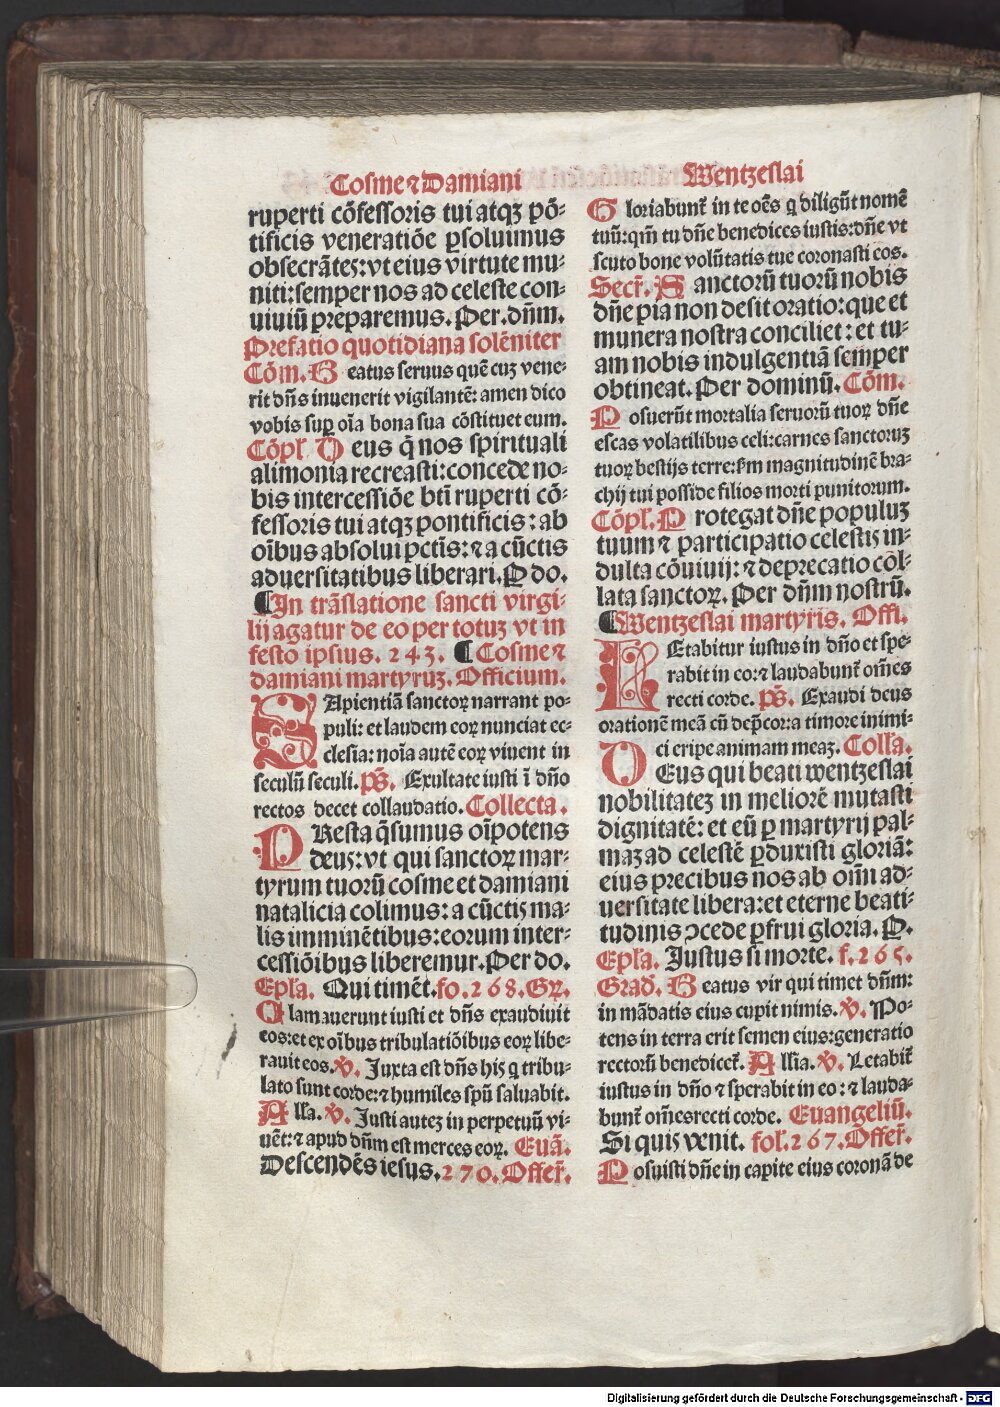 Cosme ⁊ Damiani
ruperti cõfessoris tui atqꝫ põ⸗
tificis veneratiõe ꝑsoluimus
obsecrãtes: vt eius virtute mu⸗
niti: semper nos ad celeste con⸗
uiuiũ preparemus. Per. dñm.
Prefatio quotidiana solẽniter
Cõm. Beatus seruus quẽ cuꝫ vene⸗
rit dñs inuenerit vigilantẽ: amen dico
vobis suꝑ oĩa bona sua cõstituet eum.
Cõpl. Deus q̃ nos spirituali
alimonia recreasti: concede no⸗
bis intercessiõe bti ruperti cõ⸗
fessoris tui atqꝫ pontificis: ab
oĩbus absolui pctis: ⁊ a cũctis
aduersitatibus liberari. P do.
¶ In trãslatione sancti virgi⸗
lij agatur de eo per totuꝫ vt in
festo ipsius. 243. ¶ Cosme ⁊
damiani martyruꝫ. Officium.
SApientiã sanctoꝝ narrant po⸗
puli: et laudem eoꝝ nunciat ec⸗
clesia: noĩa autẽ eoꝝ viuent in
seculũ seculi. ps̃. Exultate iusti ĩ dño
rectos decet collaudatio. Collecta.
PResta q̃sumus oĩpotens
deus: vt qui sanctoꝝ mar⸗
tyrum tuorũ cosme et damiani
natalicia colimus: a cũctis ma⸗
lis imminẽtibus: eorum inter⸗
cessiõibus liberemur. Per do.
Epła. Qui timẽt. fo. 268. Gꝝ.
Clamauerunt iusti et dñs exaudiuit
eos: et ex oĩbus tribulatiõibus eoꝝ libe⸗
rauit eos. ℣. Juxta est dñs his q tribu⸗
lato sunt corde: ⁊ humiles spũ saluabit.
Alľa. ℣. Justi auteꝫ in perpetuũ vi⸗
uẽt: ⁊ apud dñm est merces eoꝝ. Euã.
Descendẽs iesus. 270. Offer̃.
Wentzeslai
Gloriabunt̃ in te oẽs q diligũt nomẽ
tuũ: qm̃ tu dñe benedices iustis: dñe vt
scuto bone volũtatis tue coronasti eos.
Secr̃. Sanctorũ tuorũ nobis
dñe pia non desit oratio: que et
munera nostra conciliet: et tu⸗
am nobis indulgentiã semper
obtineat. Per dominũ. Cõm.
Posuerũt mortalia seruorũ tuoꝝ dñe
escas volatilibus celi: carnes sanctoruꝫ
tuoꝝ bestijs terre: ßm magnitudinẽ bra⸗
chij tui posside filios morti punitorum.
Cõpl. Protegat dñe populuꝫ
tuum ⁊ participatio celestis in⸗
dulta cõuiuij: ⁊ deprecatio col⸗
lata sanctoꝝ. Per dñm nostrũ.
¶ Wentzeslai martyris. Offi.
LEtabitur iustus in dño et spe⸗
rabit in eo: ⁊ laudabunt̃ om̃es
recti corde. ps̃. Exaudi deus
orationẽ meã cũ dep̃cor: a timore inimi⸗
ci eripe animam meaꝫ. Colľa.
DEus qui beati wentzeslai
nobilitateꝫ in meliorẽ mutasti
dignitatẽ: et eũ ꝑ martyrij pal⸗
maꝫ ad celestẽ ꝑduxisti gloriã:
eius precibus nos ab om̃i ad⸗
uersitate libera: et eterne beati⸗
tudinis ↄcede ꝑfrui gloria. P.
Epła. Justus si morte. f. 265.
Grad̃. Beatus vir qui timet dñm:
in mãdatis eius cupit nimis. ℣. Po⸗
tens in terra erit semen eius: generatio
rectorũ benedicet̃. Alľia. ℣. Letabit̃
iustus in dño ⁊ sperabit in eo: ⁊ lauda⸗
bunt̃ om̃es recti corde. Euangeliũ.
Si quis venit. fol. 267. Offer̃.
Posuisti dñe in capite eius coronã de
Digitalisierung gefördert durch die Deutsche Forschungsgemeinschaft - DFG